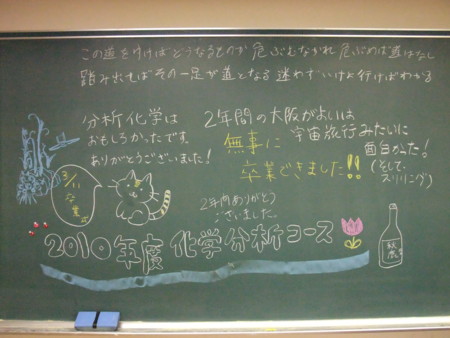 この道をゆけばどうなるものか 危ぶむなかれ 危ぶめば道はなし
踏み出せばその一足が道となる 迷わずいけよ行けばわかる
分析化学は
おもしろかったです。
ありがとうございました!
2年間の大阪がよいは
宇宙旅行みたいに
面白かった!
(そして、
スリリング)
無事に
卒業できました!!
3/11
卒業
2年間ありがとう
ございました。
2010年度 化学分析コース